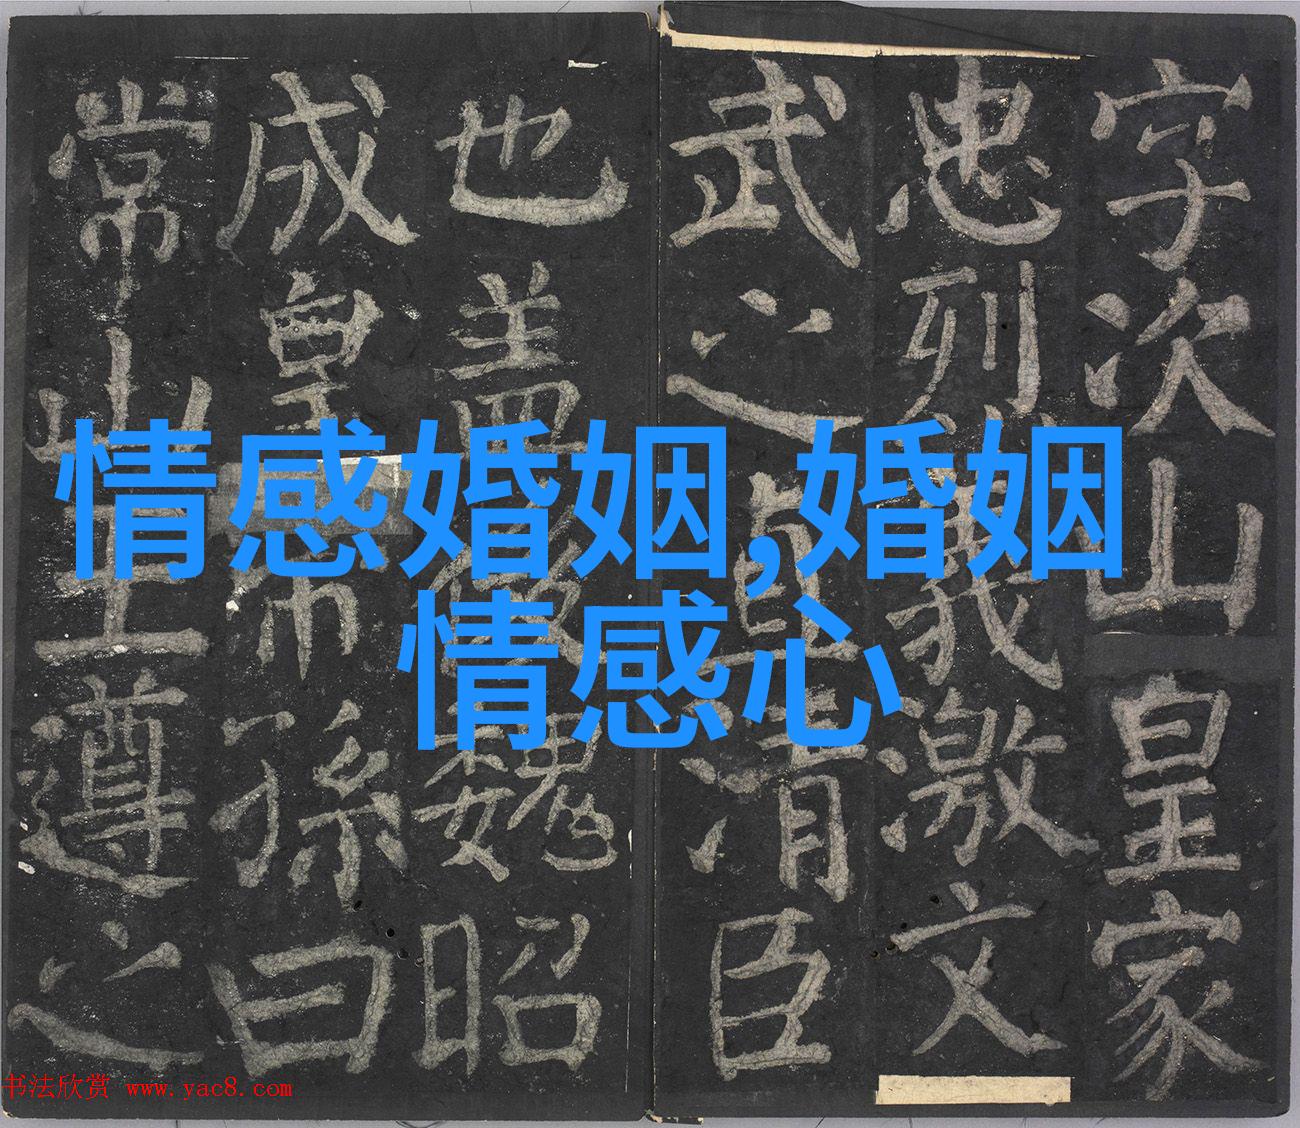 字次山皇家
忠烈義激文
武之直清臣
也蓋後魏昭
成皇帝孫曰
常山王遵之
情感婚姻,婚姻
情感心
书法欣赏 www.yac8.com